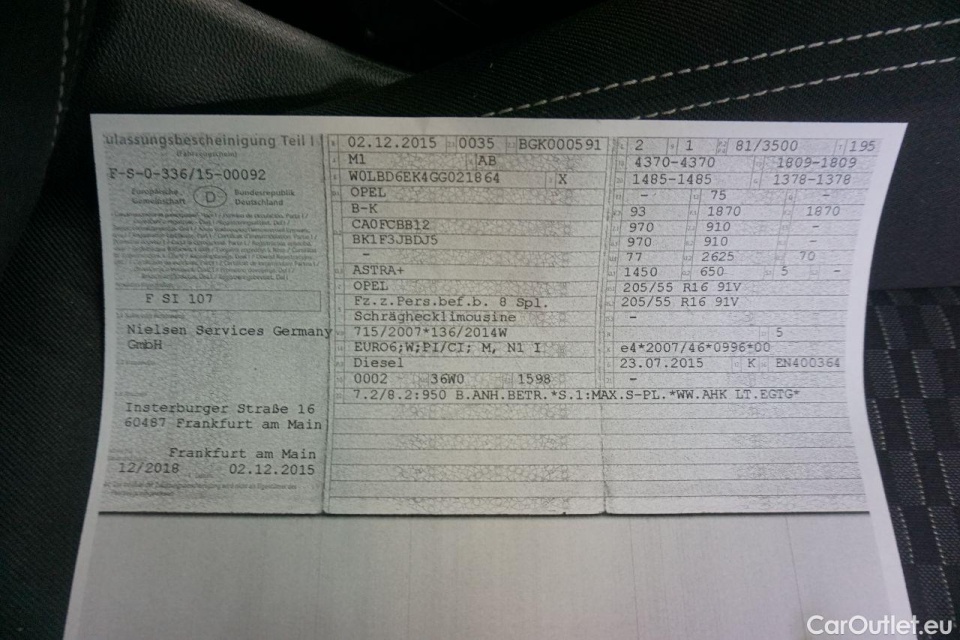 ulassungsbescheinigung Teil I
(Fahrzeugschein)
F-S-0-336/15-00092
Europäische Gemeinschaft D Bundesrepublik Deutschland
F SI 107
Nielsen Services Germany
GmbH
Insterburger Straße 16
60487 Frankfurt am Main
Frankfurt am Main
12/2018 02.12.2015
02.12.2015 0035 BGK000591
M1 AB
W0LBD6EK4GG021864 X
OPEL
B-K
CA0FCBB12
BK1F3JBDJ5
-
ASTRA+
OPEL
Fz.z.Pers.bef.b. 8 Spl.
Schräghecklimousine
715/2007*136/2014W
EURO6;W;PI/CI; M, N1 I
Diesel
0002 36W0 1598
7.2/8.2:950 B.ANH.BETR.*S.1:MAX.S-PL.*WW.AHK LT.EGTG*
2 1 81/3500 195
4370-4370 1809-1809
1485-1485 1378-1378
- 75 -
93 1870 1870
970 910 -
970 910 -
77 2625 70
1450 650 5 -
205/55 R16 91V
205/55 R16 91V
-
5
e4*2007/46*0996*00
23.07.2015 K EN400364
-
CarOutlet.eu